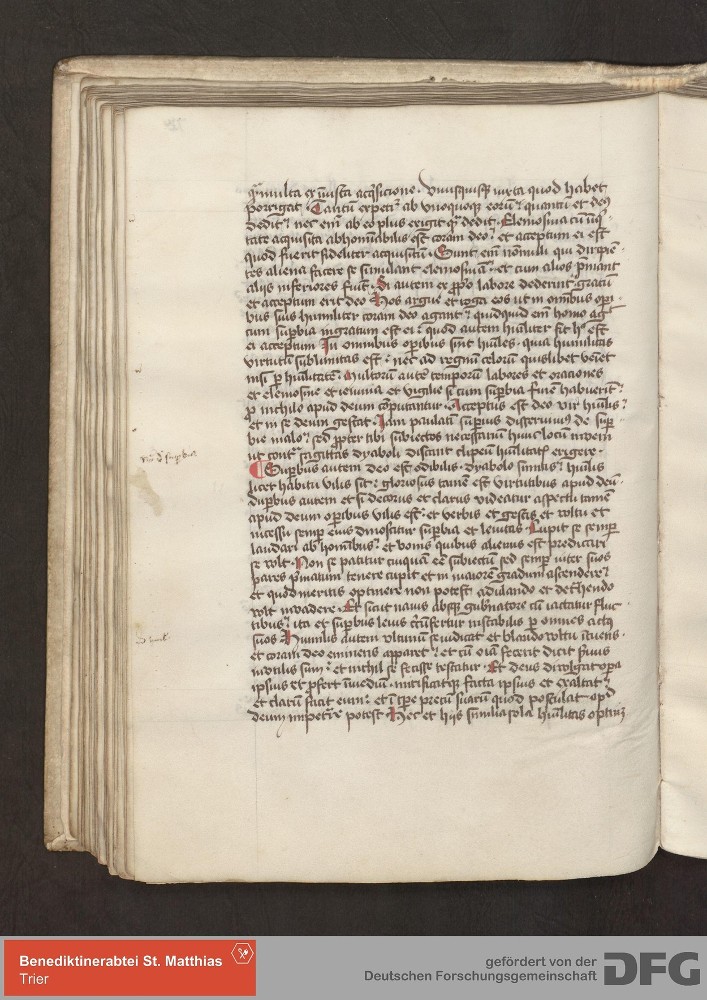 qm̄ multa ex iniusta acq̄sicione · Vnusquisqȝ iuxta quod habet
porrigat · Tantū expetit ab vnoquoqȝ eorū quantū et deꝯ
dedit · nec eīm ab eo plus exigit qm̄ dedit · Elemosina cū iniq̄
tate acquisita abhominabilis est coram deo · et acceptum ei est
quod fuerit fideliter acquisitū · Sunt eīm nōnulli qui diripiē
tes aliena facere se simulant elemosinā · et cum alios p̄mant
alijs inferiores fiūt · Si autem ex p̄p̄o labore dederint gratū
et acceptum erit deo Hos argue et roga eos ut in omnibus oꝑi
bus suis humiliter coram deo agant · quidquid eīm homo agit
cum suꝑbia ingratum est ei · quod autem hūiliter fit h° est
ei acceptum In omnibus oꝑibus sint hūiles · quia humilitas
virtutū sublimitas est · nec ad regnū celorū quislibet veniet
nisi ꝑ hūilitatē · Multorum autē temporum labores et oraciones
et elemosine et ieiunia et vigilie si cum suꝑbia finē habuerīt
ꝓ nichilo apud deum cōputantur · Acceptus est deo vir hūilis
et in se deum gestat · Iam paulatī suꝑius disseruimꝯ de suꝑ
bie malo · sed ꝓpter tibi subiectos necessariū hunc locū inveni
ut contra sagittas dyaboli discant clipeū hūilitatis erigere ·
¶ Suꝑbus autem deo est odibilis · dyabolo similis · hūilis
licet habitu vilis sit · gloriosus tamē est virtutibus apud deū ·
Suꝑbus autem et si decorus et clarus videatur aspectu tamē
apud deum oꝑibus vilis est · et verbis et gestis et voltu et
incessu semꝑ eius dinoscitur suꝑbia et levitas · Cupit se semꝑ
laudari ab hominibus · et bonis quibus alienus est predicari
se volt · Non se patitur cuiquā eē subiectū sed semꝑ inter suos
pares p̄matum tenere cupit et in maiorē gradum ascendere
et quod meritis optinere non potest adulando et det̄hendo
volt invadere · Et sicut navis absqȝ gub̄natore cū iactatur fluc
tibus · ita et suꝑbus levis circūfertur instabilis ꝑ omnes actꝯ
suos Humilis autem vltimū se iudicat et blando voltu īcedens ·
et coram deo eminens apparet · et cū oīa fecerit dicit servus
inutilis sum · et nichil se fecisse testatur · Et deus divulgat oꝑa
ipsius et ꝓfert ī mediū · mirificatqȝ facta ipsius et exaltat
et clarū facit eum · et ī tꝑe precū suarū quod postulat apd
deum impetrare potest Hec et hijs similia sola hūilitas optinȝ
Benediktinerabtei St. Matthias
Trier
gefördert von der
Deutschen Forschungsgemeinschaft
DFG